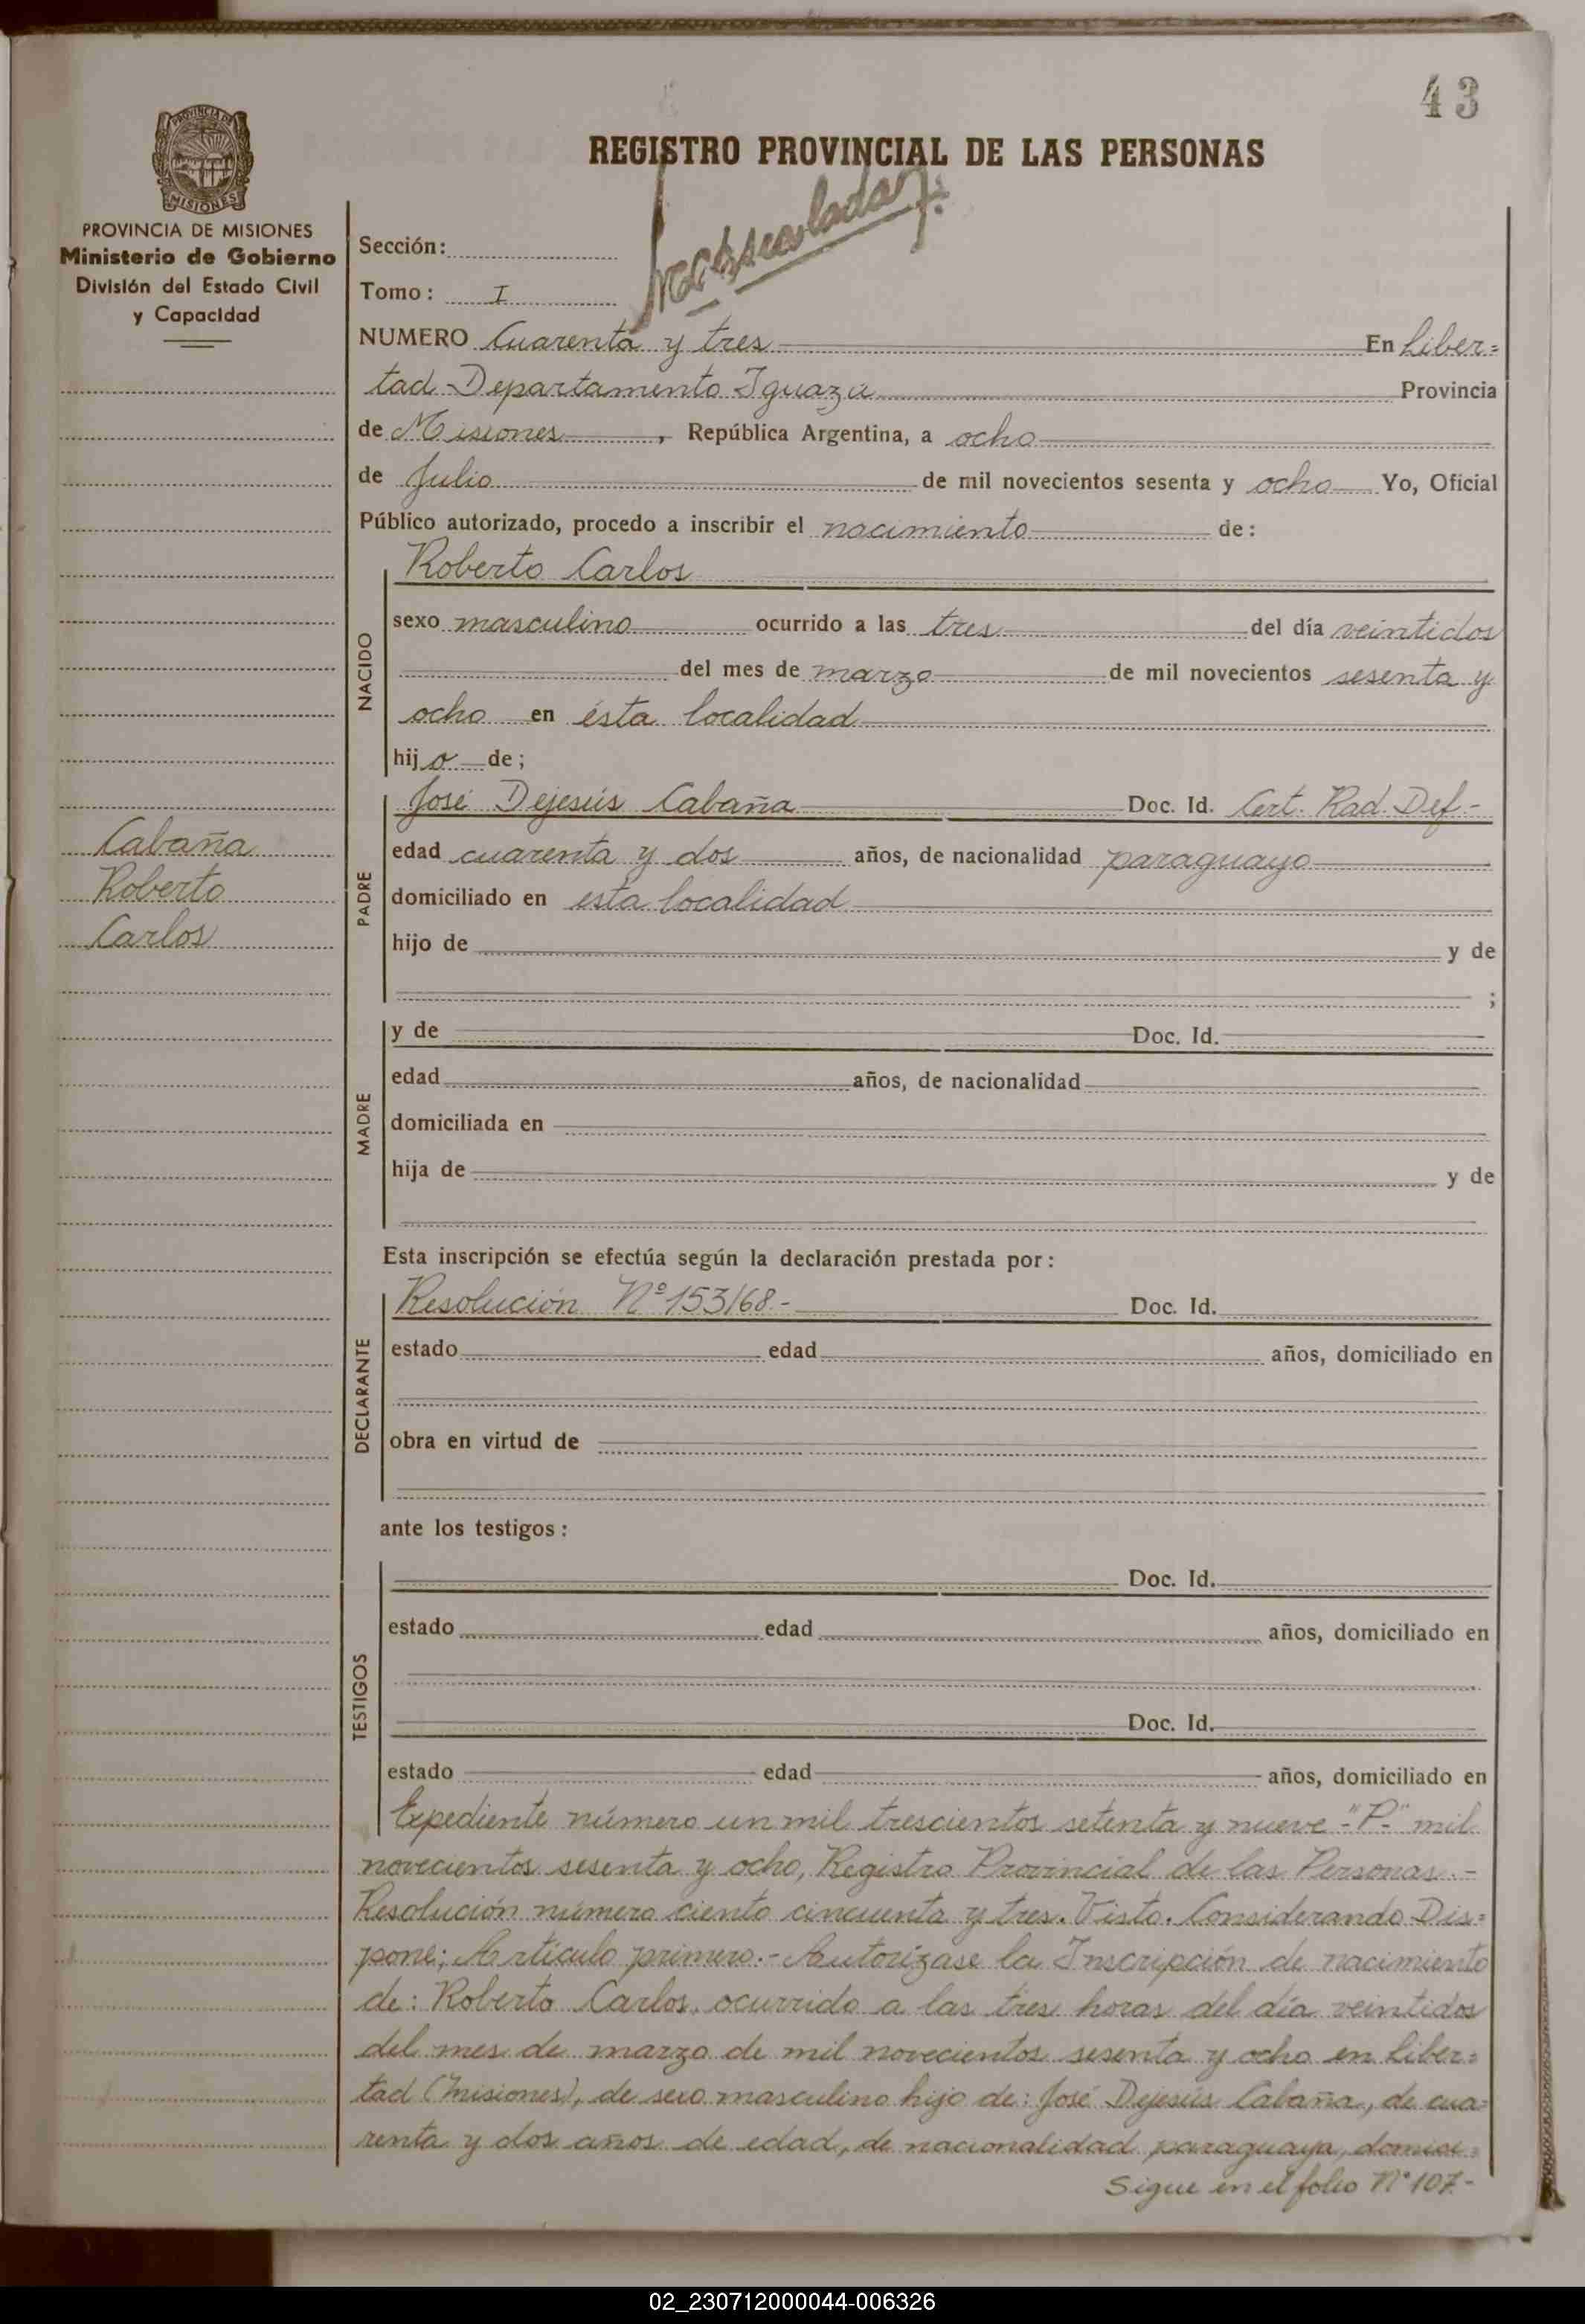 43
REGISTRO PROVINCIAL DE LAS PERSONAS
PROVINCIA DE MISIONES
Ministerio de Gobierno
División del Estado Civil
y Capacidad
Sección:
Tomo: I
NUMERO Cuarenta y tres En Liber=
tad Departamento Iguazu Provincia
de Misiones, República Argentina, a ocho
de Julio de mil novecientos sesenta y ocho Yo, Oficial
Público autorizado, procedo a inscribir el nacimiento de:
NACIDO
Roberto Carlos
sexo masculino ocurrido a las tres del día veintidos
del mes de marzo de mil novecientos sesenta y
ocho en ésta localidad
hijo de;
Cabaña
Roberto
Carlos
PADRE
José Dejesús Cabaña Doc. Id. Cert. Rad. Def.-
edad cuarenta y dos años, de nacionalidad paraguayo
domiciliado en esta localidad
hijo de y de
;
MADRE
y de Doc. Id.
edad años, de nacionalidad
domiciliada en
hija de y de
Esta inscripción se efectúa según la declaración prestada por:
DECLARANTE
Resolución Nº 153/68.- Doc. Id.
estado edad años, domiciliado en
obra en virtud de
ante los testigos:
TESTIGOS
Doc. Id.
estado edad años, domiciliado en
Doc. Id.
estado edad años, domiciliado en
Expediente número un mil trescientos setenta y nueve -"P"- mil
novecientos sesenta y ocho, Registro Provincial de las Personas.-
Resolución número ciento cincuenta y tres. Visto. Considerando Dis=
pone; Artículo primero.- Autorízase la Inscripción de nacimiento
de: Roberto Carlos, ocurrido a las tres horas del día veintidos
del mes de marzo de mil novecientos sesenta y ocho en Liber=
tad (Misiones), de sexo masculino hijo de: José Dejesús Cabaña, de cua=
renta y dos años de edad, de nacionalidad paraguaya, domici=
Sigue en el folio Nº 107.-
02_230712000044-006326